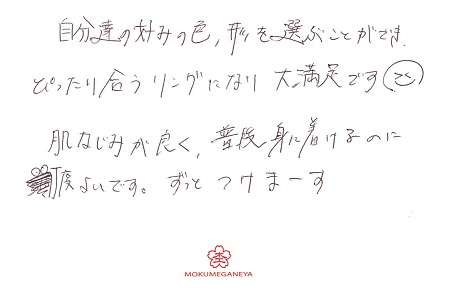 自分達の好みの色,形を選ぶことができ、
ぴったり合うリングになり大満足です
肌なじみが良く,普段身に着けるのに
丁度よいです。ずっとつけまーす
MOKUMEGANEYA